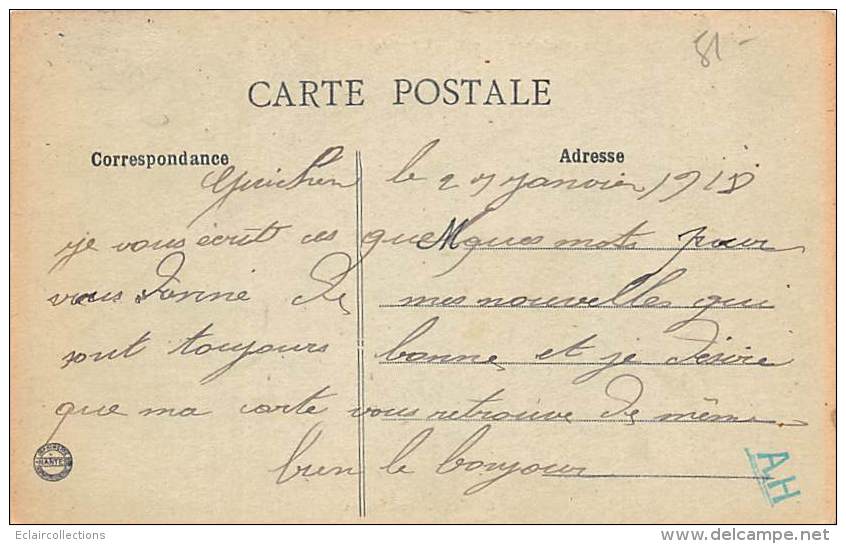 81 -
CARTE POSTALE
Correspondance
Adresse
Guichen le 27 janvier 1918
je vous écrit ces quelques mots pour
vous donné de mes nouvelles qui
sont toujours bonne et je désire
que ma carte vous retrouve de même
bien le bonjour
NANTES
AH
Eclaircollections
www.delcampe.net